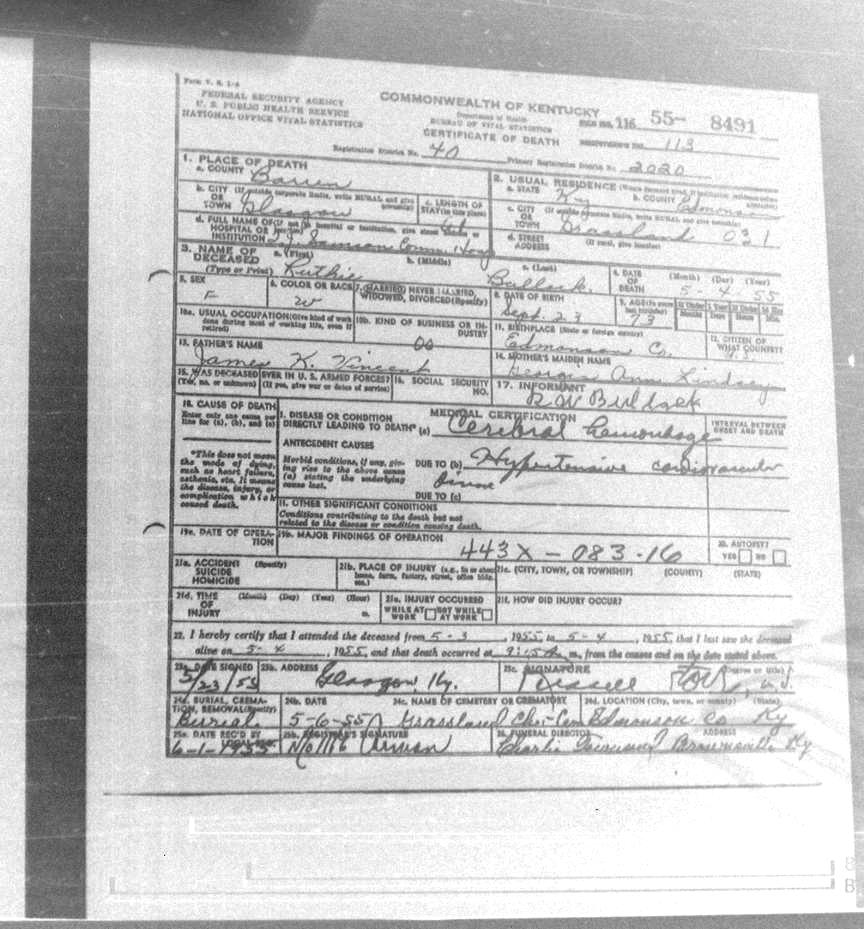 Form V. S. 1-A
FEDERAL SECURITY AGENCY
U. S. PUBLIC HEALTH SERVICE
NATIONAL OFFICE VITAL STATISTICS
COMMONWEALTH OF KENTUCKY
Department of Health
BUREAU OF VITAL STATISTICS
CERTIFICATE OF DEATH
FILE NO. 116 55- 8491
REGISTRAR'S NO. 113
Registration District No. 40
Primary Registration District No. 2020
1. PLACE OF DEATH
a. COUNTY Barren
b. CITY (If outside corporate limits, write RURAL and give township)
OR TOWN Glasgow
c. LENGTH OF STAY (in this place)
d. FULL NAME OF (If not in hospital or institution, give street
HOSPITAL OR INSTITUTION T J Samson Comm. Hosp
2. USUAL RESIDENCE (Where deceased lived. If institution: residence before admission)
a. STATE Ky b. COUNTY Edmonson
c. CITY (If outside corporate limits, write RURAL and give township)
OR TOWN Grassland 031
d. STREET ADDRESS (If rural, give location)
3. NAME OF DECEASED (Type or Print)
a. (First) Ruthie
b. (Middle)
c. (Last) Bullock
4. DATE OF DEATH (Month) (Day) (Year)
5 - 4 - 55
5. SEX F
6. COLOR OR RACE W
7. MARRIED, NEVER MARRIED, WIDOWED, DIVORCED (Specify)
8. DATE OF BIRTH Sept. 23
9. AGE (In years last birthday) 73
Months Days Hours Min.
10a. USUAL OCCUPATION (Give kind of work done during most of working life, even if retired)
10b. KIND OF BUSINESS OR INDUSTRY
11. BIRTHPLACE (State or foreign country)
Edmonson Co.
12. CITIZEN OF WHAT COUNTRY?
13. FATHER'S NAME
James K. Vincent
14. MOTHER'S MAIDEN NAME
Georgia Ann Lindsey
15. WAS DECEASED EVER IN U. S. ARMED FORCES?
(Yes, no, or unknown) (If yes, give war or dates of service)
16. SOCIAL SECURITY NO.
17. INFORMANT
R W Bullock
18. CAUSE OF DEATH
Enter only one cause per line for (a), (b), and (c)
*This does not mean the mode of dying, such as heart failure, asthenia, etc. It means the disease, injury, or complication which caused death.
MEDICAL CERTIFICATION
INTERVAL BETWEEN ONSET AND DEATH
I. DISEASE OR CONDITION
DIRECTLY LEADING TO DEATH* (a) Cerebral hemorrhage
ANTECEDENT CAUSES
Morbid conditions, if any, giving rise to the above cause (a) stating the underlying cause last.
DUE TO (b) Hypertensive cardiovascular
DUE TO (c)
II. OTHER SIGNIFICANT CONDITIONS
Conditions contributing to the death but not related to the disease or condition causing death.
19a. DATE OF OPERATION
19b. MAJOR FINDINGS OF OPERATION
443X - 083-16
20. AUTOPSY
YES NO
21a. ACCIDENT SUICIDE HOMICIDE (Specify)
21b. PLACE OF INJURY (e.g., in or about home, farm, factory, street, office bldg. etc.)
21c. (CITY, TOWN, OR TOWNSHIP) (COUNTY) (STATE)
21d. TIME OF INJURY (Month) (Day) (Year) (Hour) m.
21e. INJURY OCCURRED
WHILE AT WORK NOT WHILE AT WORK
21f. HOW DID INJURY OCCUR?
22. I hereby certify that I attended the deceased from 5-3, 1955, to 5-4, 1955, that I last saw the deceased
alive on 5-4, 1955, and that death occurred at 9:15A m., from the causes and on the date stated above.
23a. DATE SIGNED 5/23/55
23b. ADDRESS Glasgow, Ky.
23c. SIGNATURE (Degree or title)
24a. BURIAL, CREMATION, REMOVAL (Specify) Burial
24b. DATE 5-6-55
24c. NAME OF CEMETERY OR CREMATORY Grassland
24d. LOCATION (City, town, or county) (State) Edmonson Co Ky
25a. DATE REC'D BY 6-1-1955
25b. REGISTRAR'S SIGNATURE
26. FUNERAL DIRECTOR ADDRESS
Charlie Brownsville Ky